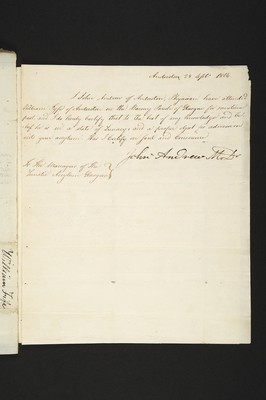 Anderston 23 Septr 1814
I John Andrew of Anderston Physician have attended
William Fyfe of Anderston in the Barony Parish of Glasgow for sometime
past and do hereby Certify that to the best of my knowledge and be-
lief he is in a state of Insanity and a proper object for admission
into your asylum. This I Certify on Soul and Conscience
John Andrew M.D.
To the Managers of the
Lunatic Asylum Glasgow
William Fyfe